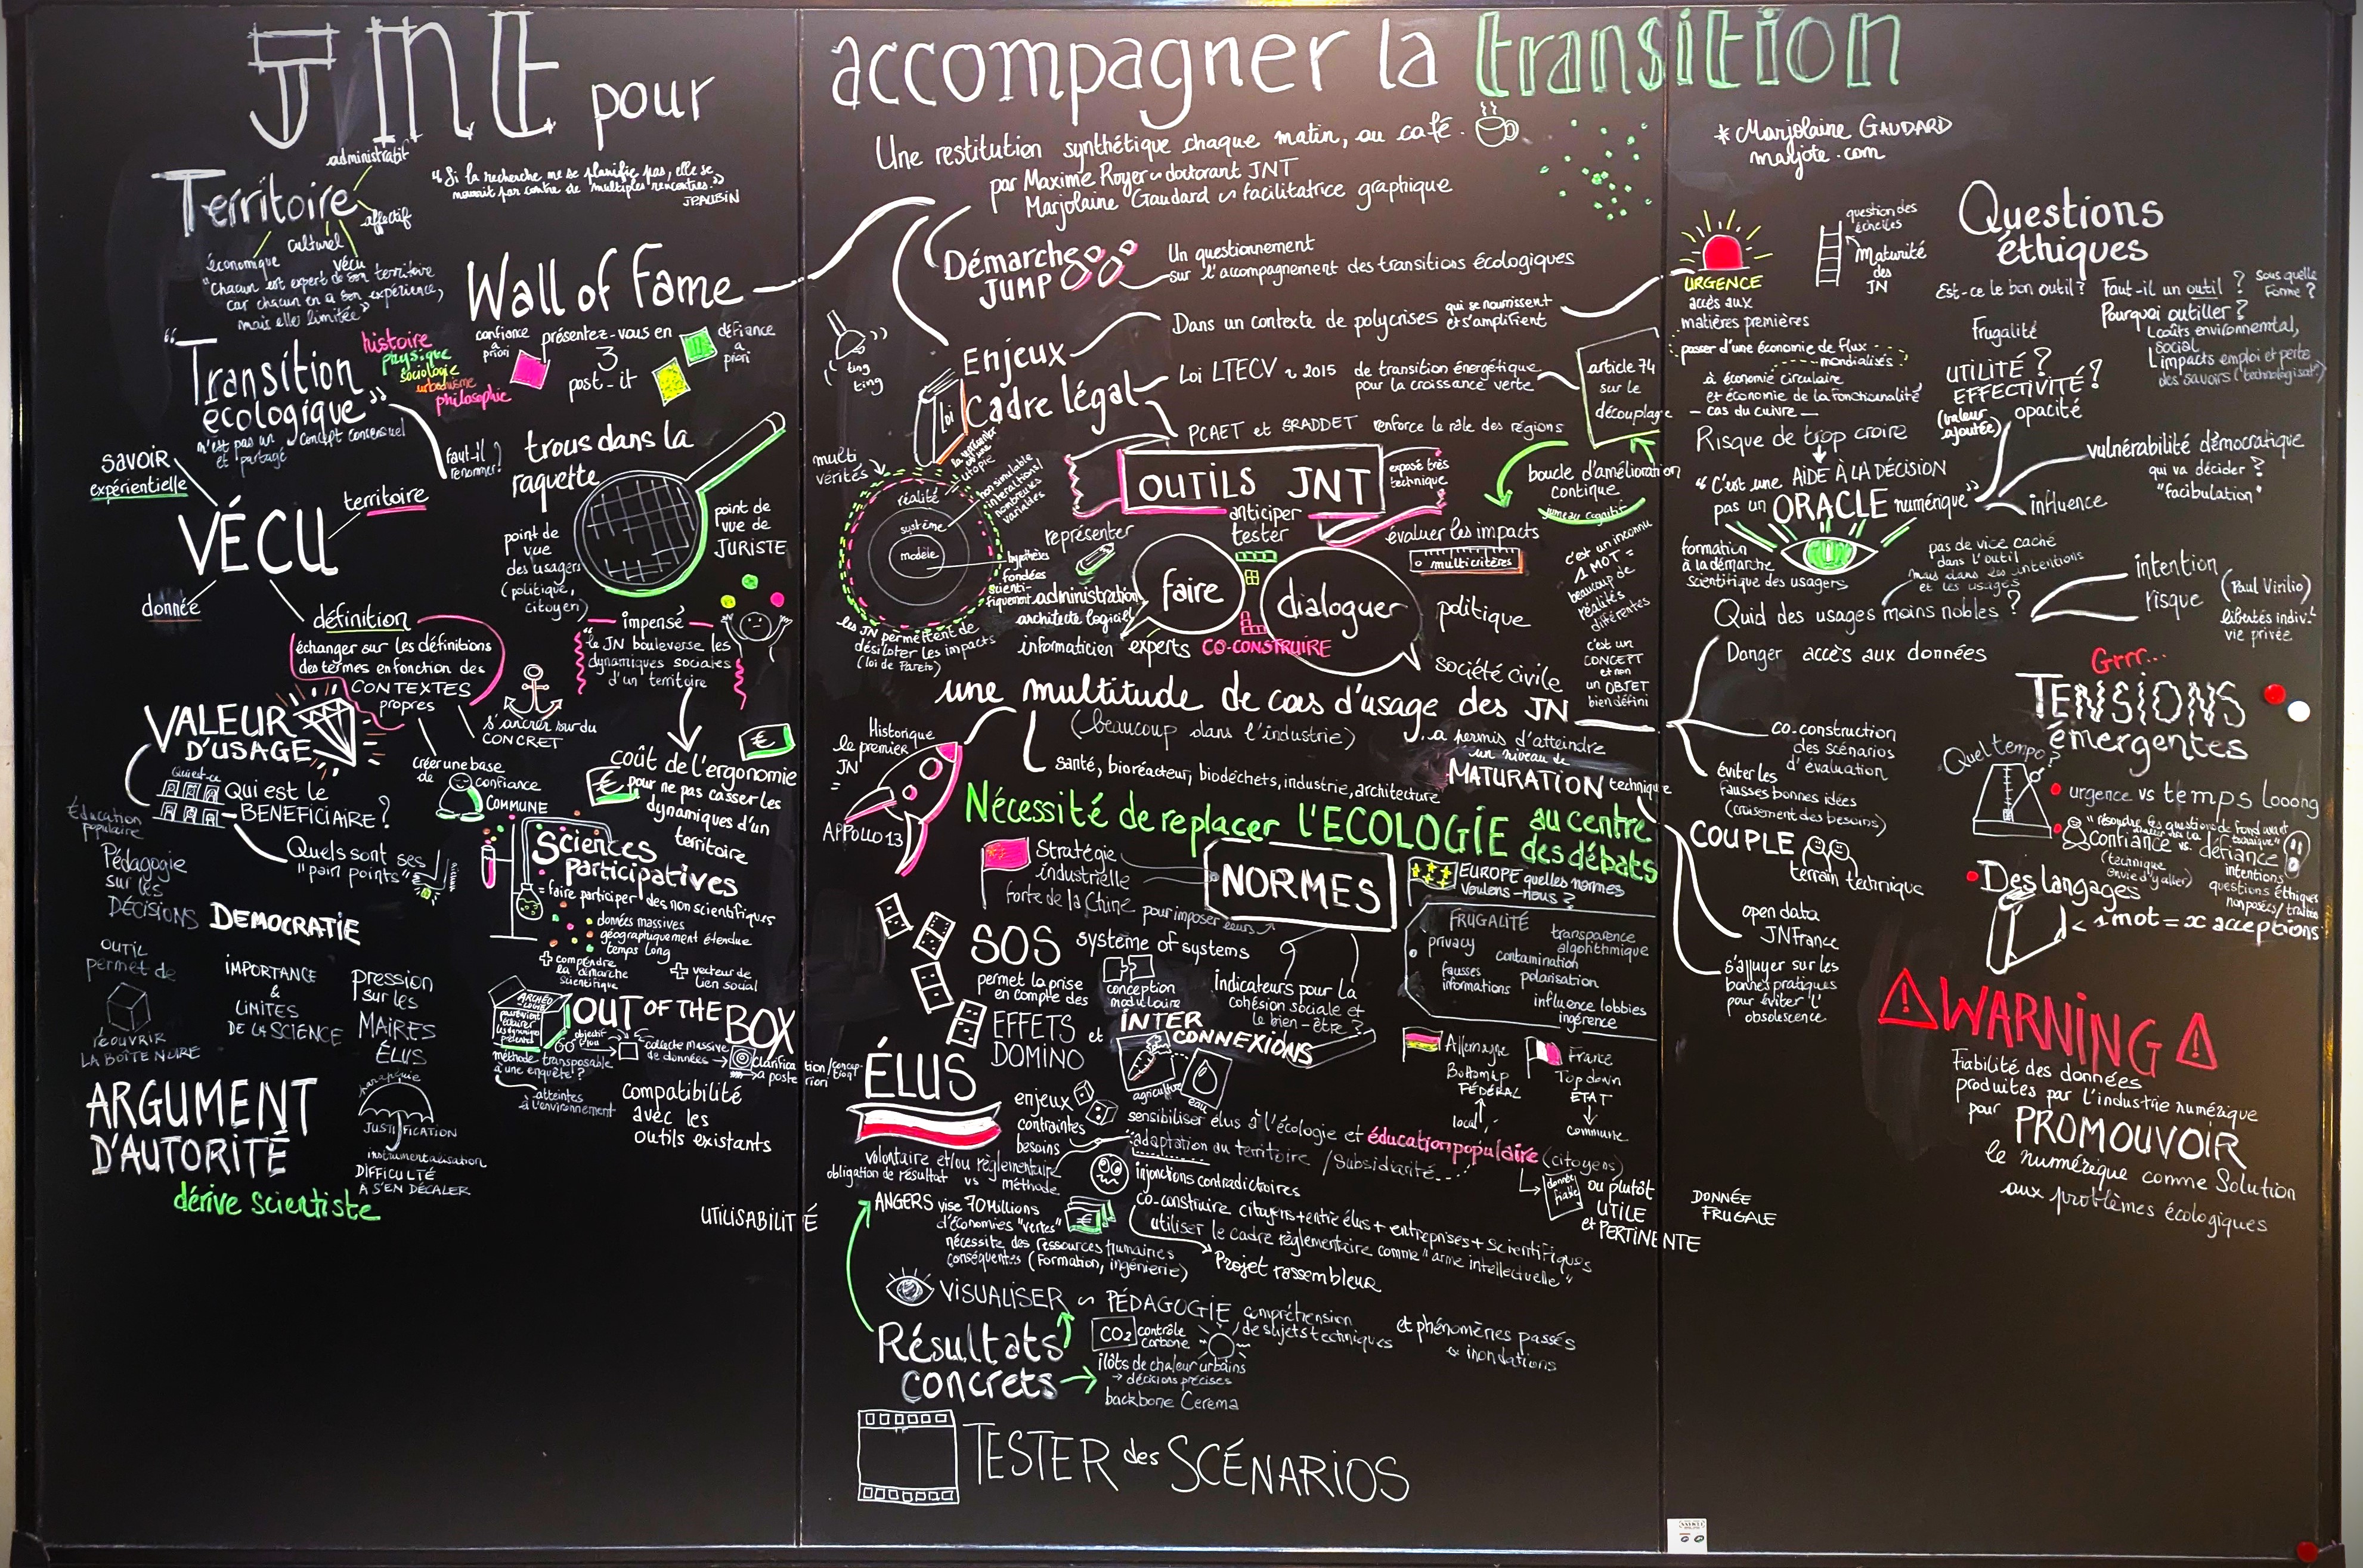 JNT pour
accompagner la transition
Une restitution synthétique chaque matin, au café.
par Maxime Royer doctorant JNT
Marjolaine Gaudard facilitatrice graphique
* Marjolaine GAUDARD
marjote.com
Territoire
administratif
affectif
culturel
vécu
économique
"Chacun est expert de son territoire
car chacun en a son expérience,
mais elle limitée"
"Si la recherche ne se planifie pas, elle se
nourrit par contre de multiples rencontres."
JPAUBIN
Wall of Fame
confiance
a
priori
présentez-vous en
3
post-it
défiance
a
priori
"Transition
écologique"
histoire
physique
sociologie
urbanisme
philosophie
n'est pas un concept consensuel
et partagé
faut-il
renommer?
trous dans la
raquette
point de
vue
des usagers
(politique,
citoyen)
point de
vue de
JURISTE
savoir
expérientielle
VÉCU
territoire
donnée
définition
échanger sur les définitions
des termes en fonction des
CONTEXTES
propres
impensé
"le JN bouleverse les
dynamiques sociales
d'un territoire
s'ancrer sur du
CONCRET
créer une base
de confiance
COMMUNE
VALEUR
D'USAGE
Qui est-ce
Qui est le
BENEFICIAIRE?
Quels sont ses
"pain points"
coût de l'ergonomie
pour ne pas casser les
dynamiques d'un
territoire
€
€
Éducation
populaire
Pédagogie
sur les
DÉCISIONS
DEMOCRATIE
Sciences
participatives
= faire participer des non scientifiques
données massives
géographiquement étendue
temps long
+ comprendre
la démarche
scientifique
+ vecteur de
lien social
OUTIL
permet de
réouvrir
LA BOÎTE NOIRE
IMPORTANCE
&
LIMITES
DE LA SCIENCE
pression
sur les
MAIRES
ÉLUS
ARCHÉO
LOGIE
OUT OF THE BOX
objectif
flou
collecte massive
de données
méthode transposable
à une enquête?
atteintes
à l'environnement
compatibilité
avec les
outils existants
ARGUMENT
D'AUTORITÉ
parapluie
JUSTIFICATION
instrumentalisation
DIFFICULTÉ
À S'EN DÉCALER
dérive scientiste
UTILISABILITÉ
Démarche
JUMP
Un questionnement
sur l'accompagnement des transitions écologiques
ting
ting
Enjeux
Dans un contexte de polycrises qui se nourrissent
et s'amplifient
loi
Cadre légal
Loi LTECV 2015 de transition énergétique
pour la croissance verte
article 74
sur le
découplage
PCAET et SRADDET renforce le rôle des régions
OUTILS JNT
exposé très
technique
boucle d'amélioration
continue
jumeau cognitif
multi
vérités
réalité
système
modèle
non simulable
interactions/
nombreuses
variables
hypothèses
fondées
scienti-
fiquement
les JN permettent de
désiloter les impacts
(loi de Pareto)
représenter
anticiper
tester
évaluer les impacts
multicritères
administration
architecte logiciel
informaticien
experts
faire
dialoguer
CO-CONSTRUIRE
politique
société civile
c'est un inconnu
1 MOT =
beaucoup de
réalités
différentes
c'est un
CONCEPT
et non
un OBJET
bien défini
une multitude de cas d'usage des JN
(beaucoup dans l'industrie)
santé, bioréacteur, biodéchets, industrie, architecture
...a permis d'atteindre
un niveau de
MATURATION technique
Historique
le premier
JN
=
APPOLLO 13
Nécessité de replacer l'ECOLOGIE au centre
des débats
Stratégie
industrielle
forte de la Chine pour imposer leurs
NORMES
EUROPE quelles normes
voulons-nous?
FRUGALITÉ
privacy
transparence
algorithmique
contamination
fausses
informations
polarisation
influence lobbies
ingérence
SOS système of systems
permet la prise
en compte des
EFFETS
DOMINO
et
conception
modulaire
INTER
CONNEXIONS
agriculture
eau
Indicateurs pour la
cohésion sociale et
le bien-être?
Allemagne
Bottom up
FÉDÉRAL
local
France
Top down
ETAT
commune
ÉLUS
enjeux
contraintes
besoins
sensibiliser élus à l'écologie et éducation populaire (citoyens)
adaptation au territoire / Subsidiarité...
volontaire et/ou règlementaire
obligation de résultat vs méthode
injonctions contradictoires
donnée
fiable
ou plutôt
UTILE
et PERTINENTE
DONNÉE
FRUGALE
ANGERS vise 70 Millions
d'économies "vertes"
€
nécessite des ressources humaines
conséquentes (formation, ingénierie)
co-construire citoyens + entre élus + entreprises + scientifiques
utiliser le cadre règlementaire comme "arme intellectuelle"
Projet rassembleur
VISUALISER PÉDAGOGIE compréhension
de sujets techniques
et phénomènes passés
inondations
Résultats
concrets
CO2 contrôle
carbone
ilôts de chaleur urbains
→ décisions précises
backbone Cerema
TESTER des SCÉNARIOS
URGENCE
accès aux
matières premières
passer d'une économie de flux
mondialisés
à économie circulaire
et économie de la fonctionnalité
— cas du cuivre —
question des
échelles
Maturité
des
JN
Questions
éthiques
Est-ce le bon outil?
Faut-il un outil?
Sous quelle
forme?
Pourquoi outiller?
coûts environnemental,
social
impacts emploi et perte
des savoirs (technologisat°)
Frugalité
UTILITÉ?
EFFECTIVITÉ?
(valeur
ajoutée)
opacité
Risque de trop croire
"C'est une AIDE À LA DÉCISION
pas un ORACLE numérique"
vulnérabilité démocratique
qui va décider?
"facibulation"
influence
formation
à la démarche
scientifique des usagers
pas de vice caché
dans l'outil
mais dans les intentions
et les usages
Quid des usages moins nobles?
intention
risque
(Paul Virilio)
libertés indiv.
vie privée
Danger accès aux données
co-construction
des scénarios
d'évaluation
éviter les
fausses bonnes idées
(croisement des besoins)
COUPLE
terrain technique
open data
JNFrance
s'appuyer sur les
bonnes pratiques
pour éviter l'
obsolescence
Grrr...
TENSIONS
émergentes
Quel tempo?
urgence vs temps looong
"résoudre les questions de fond avant
confiance vs. défiance
(technique
envie d'y aller)
intentions
questions éthiques
non posées/traitées
Des langages
< 1 mot = x acceptions
WARNING
fiabilité des données
produites par l'industrie numérique
pour PROMOUVOIR
le numérique comme Solution
aux problèmes écologiques